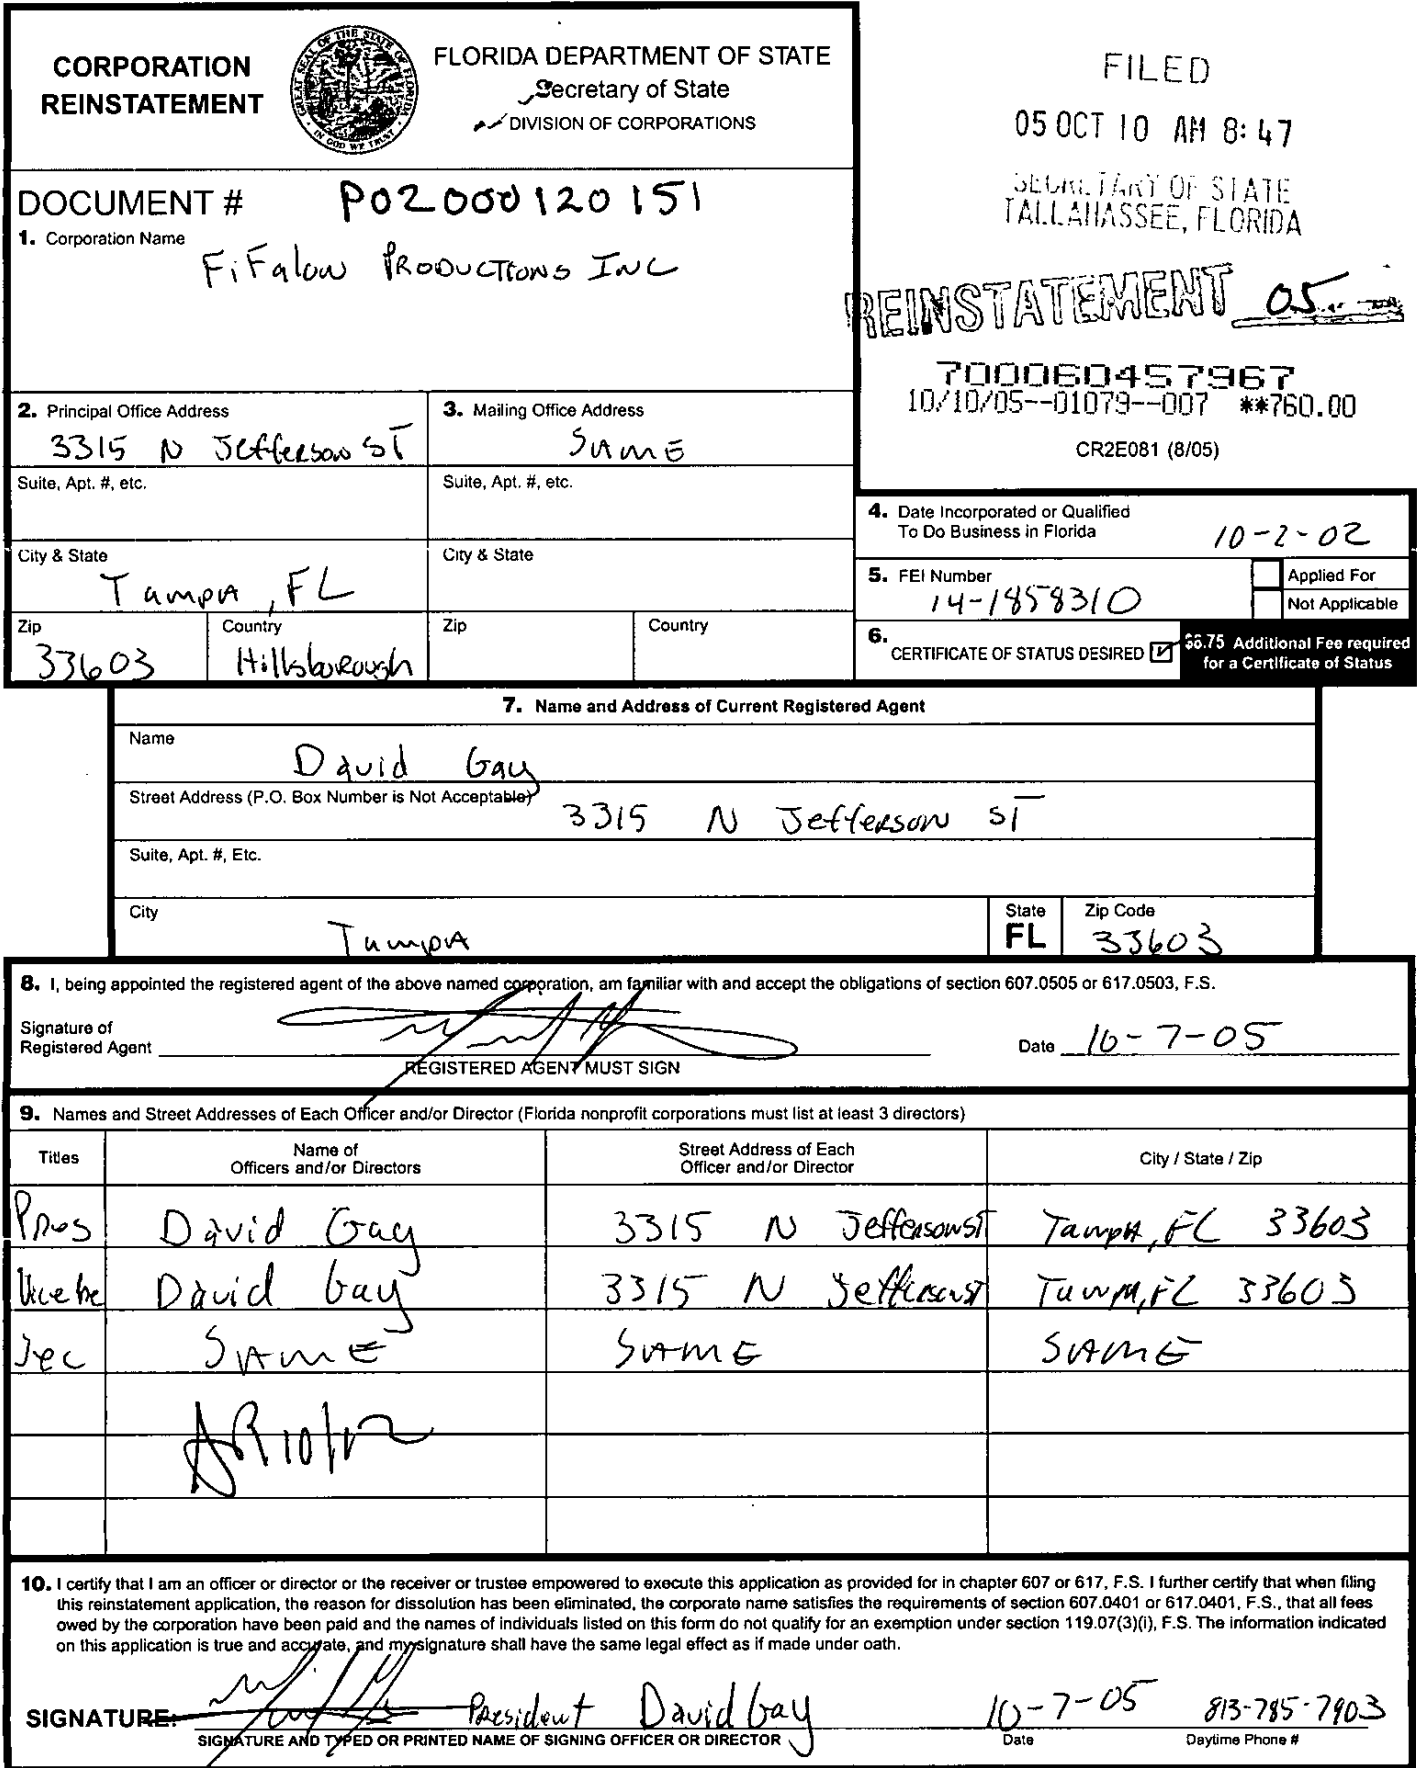 CORPORATION
REINSTATEMENT
GREAT SEAL OF THE STATE OF FLORIDA
IN GOD WE TRUST
FLORIDA DEPARTMENT OF STATE
Secretary of State
DIVISION OF CORPORATIONS
FILED
05 OCT 10 AM 8:47
SECRETARY OF STATE
TALLAHASSEE, FLORIDA
REINSTATEMENT 05
700060457967
10/10/05--01079--007 **760.00
CR2E081 (8/05)
DOCUMENT # P02000120151
1. Corporation Name
FiFalow PRODUCTIONS INC
2. Principal Office Address
3315 N Jefferson ST
3. Mailing Office Address
SAME
Suite, Apt. #, etc.
Suite, Apt. #, etc.
City & State
Tampa, FL
City & State
Zip
33603
Country
Hillsborough
Zip
Country
4. Date Incorporated or Qualified
To Do Business in Florida
10-2-02
5. FEI Number
14-1858310
Applied For
Not Applicable
6. CERTIFICATE OF STATUS DESIRED
$8.75 Additional Fee required
for a Certificate of Status
7. Name and Address of Current Registered Agent
Name
David Gay
Street Address (P.O. Box Number is Not Acceptable)
3315 N Jefferson ST
Suite, Apt. #, Etc.
City
Tampa
State
FL
Zip Code
33603
8. I, being appointed the registered agent of the above named corporation, am familiar with and accept the obligations of section 607.0505 or 617.0503, F.S.
Signature of
Registered Agent
REGISTERED AGENT MUST SIGN
Date 10-7-05
9. Names and Street Addresses of Each Officer and/or Director (Florida nonprofit corporations must list at least 3 directors)
Titles
Name of
Officers and/or Directors
Street Address of Each
Officer and/or Director
City / State / Zip
Pres David Gay 3315 N Jefferson ST Tampa, FL 33603
Vice Pre David Gay 3315 N Jefferson ST Tampa, FL 33603
Sec SAME SAME SAME
AR 10/12
10. I certify that I am an officer or director or the receiver or trustee empowered to execute this application as provided for in chapter 607 or 617, F.S. I further certify that when filing
this reinstatement application, the reason for dissolution has been eliminated, the corporate name satisfies the requirements of section 607.0401 or 617.0401, F.S., that all fees
owed by the corporation have been paid and the names of individuals listed on this form do not qualify for an exemption under section 119.07(3)(i), F.S. The information indicated
on this application is true and accurate, and my signature shall have the same legal effect as if made under oath.
SIGNATURE: President David Gay 10-7-05 813-785-7903
SIGNATURE AND TYPED OR PRINTED NAME OF SIGNING OFFICER OR DIRECTOR
Date
Daytime Phone #